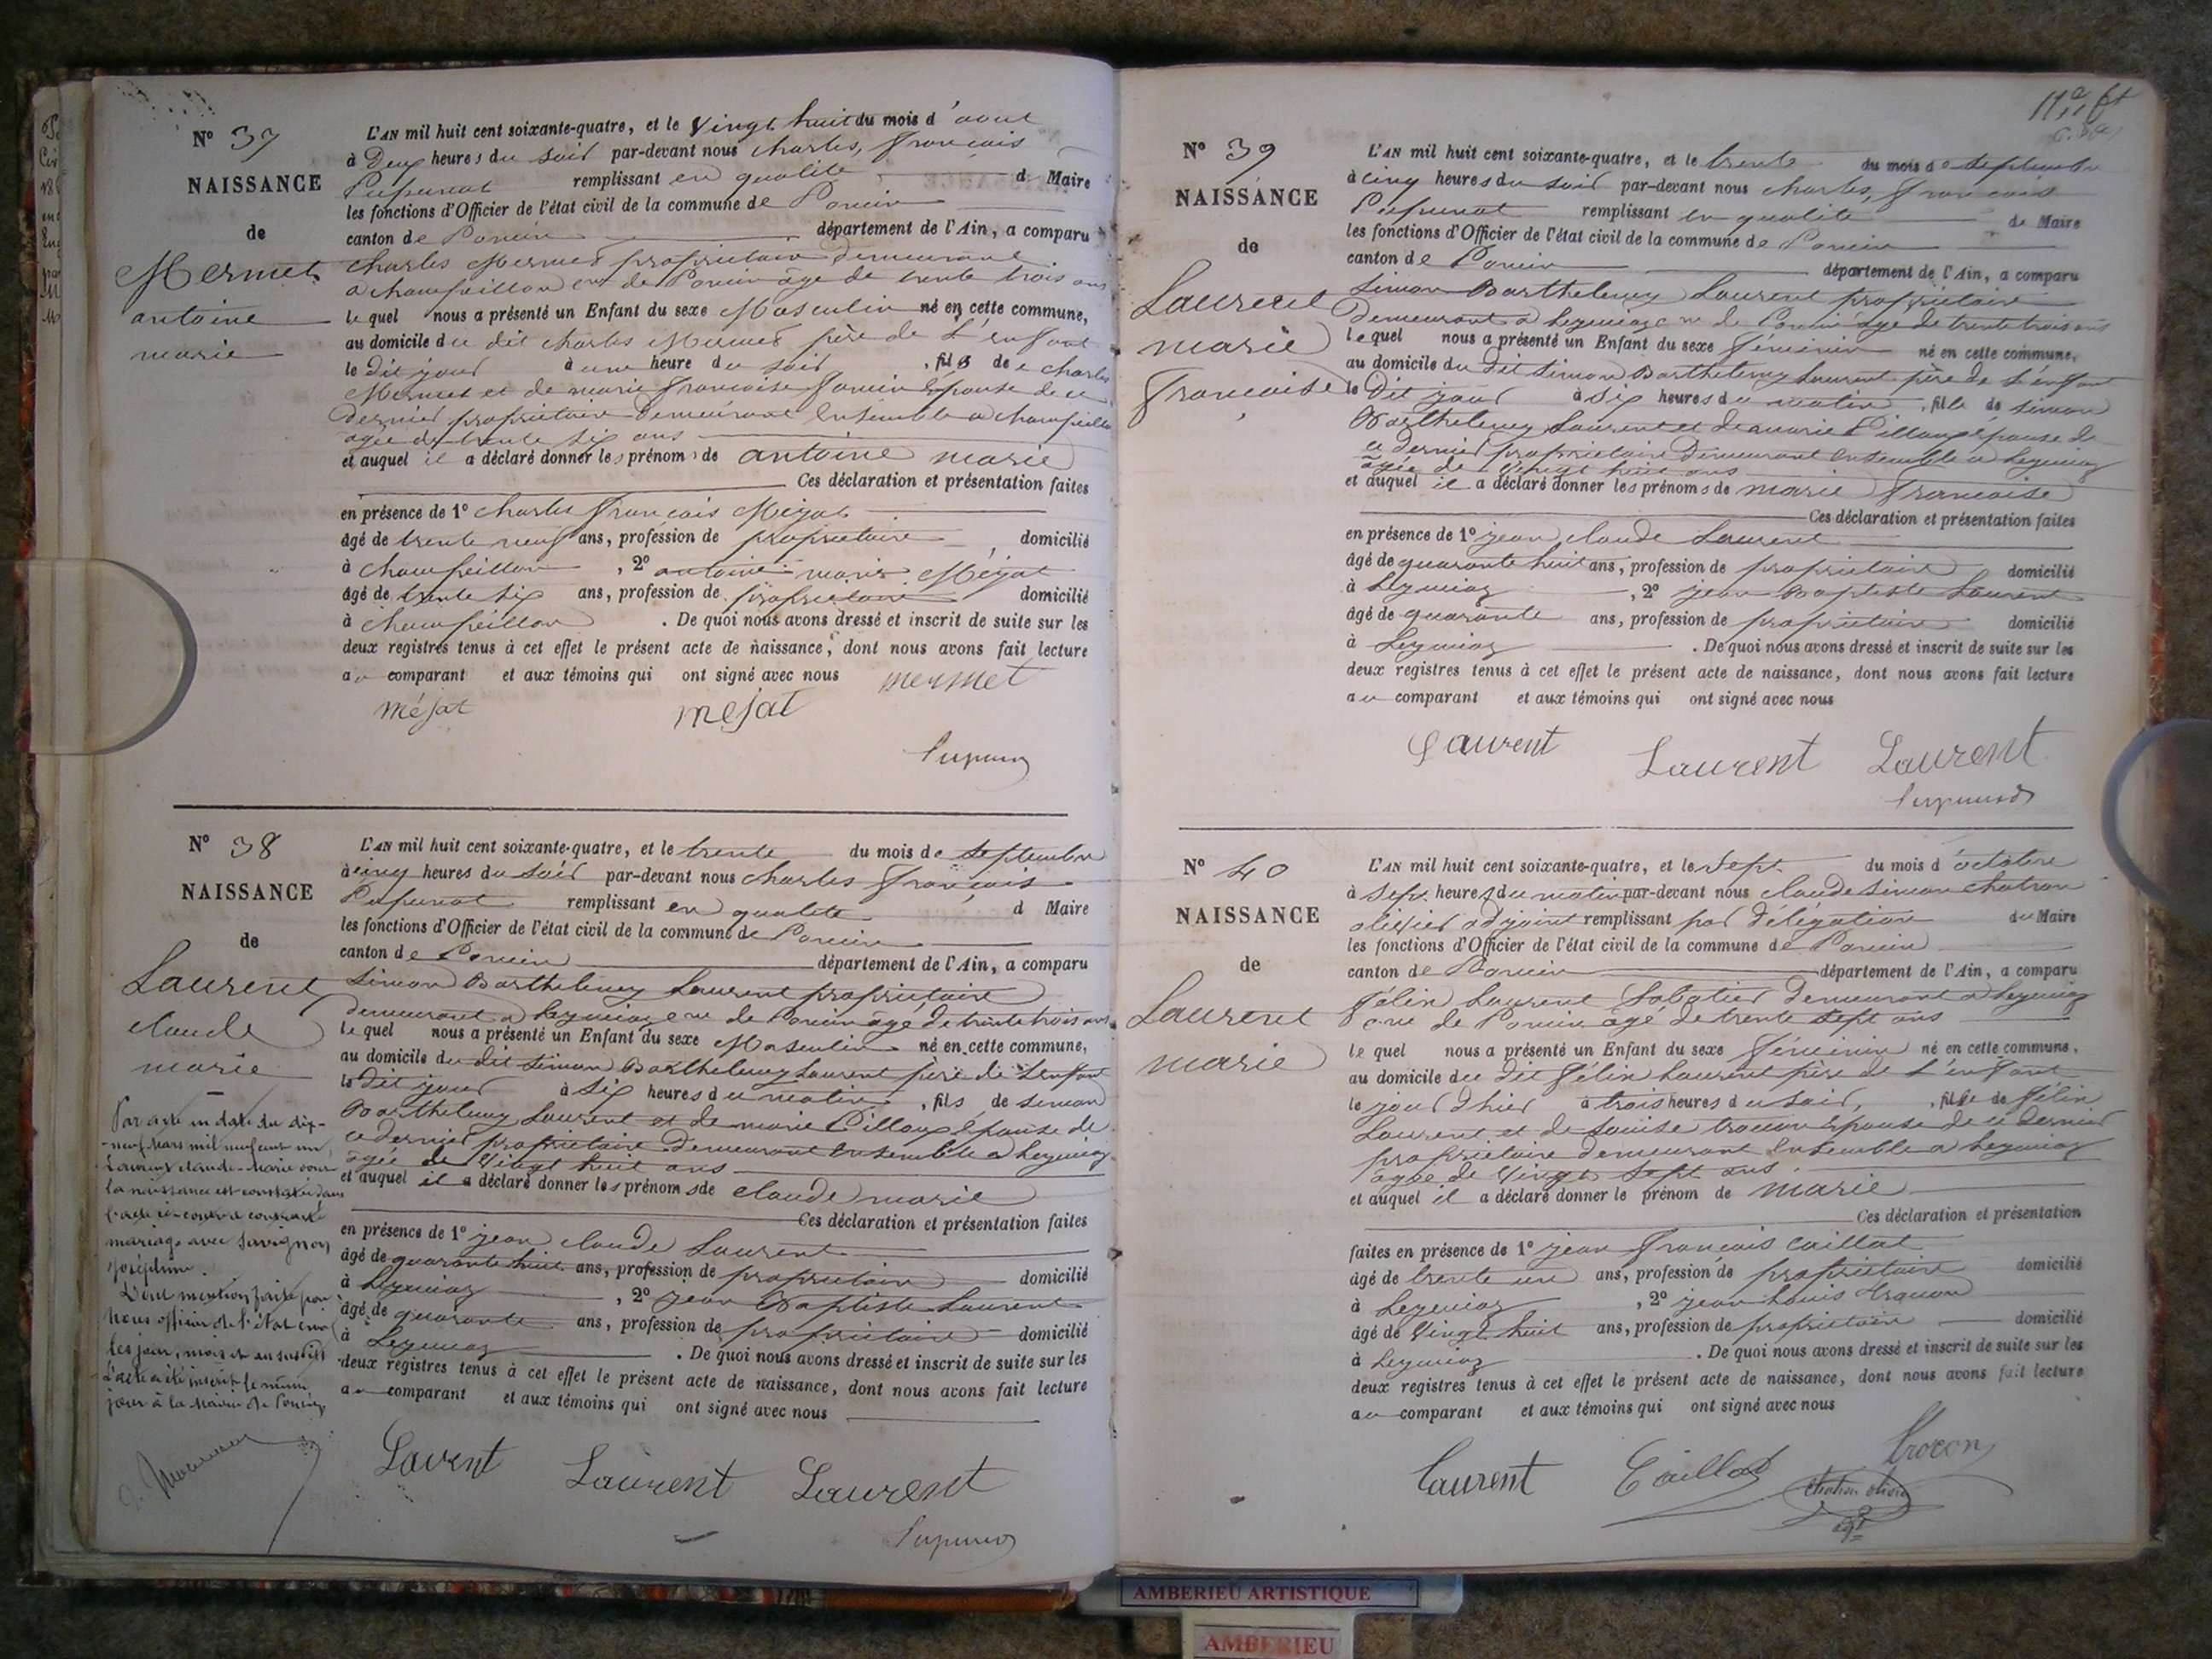 N° 37
NAISSANCE
de
Mermet
antoine
marie
L'AN mil huit cent soixante-quatre, et le Vingt huit du mois d'aout
à Deux heures du soir par-devant nous charles, françois
Pupunat remplissant en qualité d Maire
les fonctions d'Officier de l'état civil de la commune de Poncin
canton de Poncin département de l'Ain, a comparu
charles Mermet propriétaire demeurant
a champeillon cne de Poncin âgé de trente trois ans
le quel nous a présenté un Enfant du sexe Masculin né en cette commune,
au domicile du dit charles Mermet père de l'enfant
le dit jour à une heure du soir, fils de charles
Mermet et de marie françoise épouse de ce
dernier propriétaire demeurant ensemble a champeillon
agée de trente six ans
et auquel il a déclaré donner les prénoms de antoine marie
Ces déclaration et présentation faites
en présence de 1° charles françois Méjat
âgé de trente neuf ans, profession de propriétaire, domicilié
à champeillon, 2° antoine marie Méjat
âgé de trente six ans, profession de propriétaire domicilié
à champeillon. De quoi nous avons dressé et inscrit de suite sur les
deux registres tenus à cet effet le présent acte de naissance, dont nous avons fait lecture
au comparant et aux témoins qui ont signé avec nous mermet
méjat mejat
N° 38
NAISSANCE
de
Laurent
claude
marie
L'AN mil huit cent soixante-quatre, et le trente du mois de septembre
à cinq heures du soir par-devant nous charles françois
Pupunat remplissant en qualité d Maire
les fonctions d'Officier de l'état civil de la commune de Poncin
canton de Poncin département de l'Ain, a comparu
simon Barthelemy Laurent propriétaire
demeurant a Leymiaz cne de Poncin âgé de trente trois ans
le quel nous a présenté un Enfant du sexe Masculin né en cette commune,
au domicile du dit simon Barthelemy Laurent père de l'enfant
le dit jour à six heures du matin, fils de simon
Barthelemy Laurent et de marie Pilloux épouse de
ce dernier propriétaire demeurant ensemble a Leymiaz
agée de Vingt huit ans
et auquel il a déclaré donner les prénoms de claude marie
Ces déclaration et présentation faites
en présence de 1° jean claude Laurent
âgé de quarante huit ans, profession de propriétaire domicilié
à Leymiaz, 2° jean Baptiste Laurent
âgé de quarante ans, profession de propriétaire domicilié
à Leymiaz. De quoi nous avons dressé et inscrit de suite sur les
deux registres tenus à cet effet le présent acte de naissance, dont nous avons fait lecture
au comparant et aux témoins qui ont signé avec nous
Par acte en date du dix-
-neuf mars mil neuf cent un,
Laurent claude-Marie dont
la naissance est constatée dans
l'acte ci-contre a contracté
mariage avec Savignon
joséphine.
Dont mention faite par
nous officier de l'état civil
les jour, mois et an susdits
L'acte a été inscrit le même
jour à la Mairie de Poncin
Lavent Laurent Laurent
N° 39
NAISSANCE
de
Laurent
marie
françoise
L'AN mil huit cent soixante-quatre, et le trente du mois de septembre
à cinq heures du soir par-devant nous charles, françois
Pupunat remplissant en qualité de Maire
les fonctions d'Officier de l'état civil de la commune de Poncin
canton de Poncin département de l'Ain, a comparu
simon Barthelemy Laurent propriétaire
demeurant a Leymiaz cne de Poncin âgé de trente trois ans
le quel nous a présenté un Enfant du sexe féminin né en cette commune,
au domicile du dit simon Barthelemy Laurent père de l'enfant
le dit jour à six heures du matin, fille de simon
Barthelemy Laurent et de marie Pilloux épouse de
ce dernier propriétaire demeurant ensemble a Leymiaz
agée de Vingt huit ans
et auquel il a déclaré donner les prénoms de marie françoise
Ces déclaration et présentation faites
en présence de 1° jean claude Laurent
âgé de quarante huit ans, profession de propriétaire domicilié
à Leymiaz, 2° jean Baptiste Laurent
âgé de quarante ans, profession de propriétaire domicilié
à Leymiaz. De quoi nous avons dressé et inscrit de suite sur les
deux registres tenus à cet effet le présent acte de naissance, dont nous avons fait lecture
au comparant et aux témoins qui ont signé avec nous
Laurent Laurent Laurent
N° 40
NAISSANCE
de
Laurent
marie
L'AN mil huit cent soixante-quatre, et le Sept du mois d'octobre
à sept heures du matin par-devant nous claude simon chatron
olivier adjoint remplissant par délégation du Maire
les fonctions d'Officier de l'état civil de la commune de Poncin
canton de Poncin département de l'Ain, a comparu
félix Laurent Sabotier demeurant a Leymiaz
cne de Poncin âgé de trente sept ans
le quel nous a présenté un Enfant du sexe féminin né en cette commune,
au domicile du dit félix Laurent père de l'enfant
le jour d'hier à trois heures du soir, fille de félix
Laurent et de Louise trocon épouse de ce dernier
propriétaire demeurant ensemble a Leymiaz
agée de Vingt sept ans
et auquel il a déclaré donner le prénom de marie
Ces déclaration et présentation
faites en présence de 1° jean françois Caillat
âgé de trente un ans, profession de propriétaire domicilié
à Leymiaz, 2° jean Louis
âgé de Vingt huit ans, profession de propriétaire domicilié
à Leymiaz. De quoi nous avons dressé et inscrit de suite sur les
deux registres tenus à cet effet le présent acte de naissance, dont nous avons fait lecture
au comparant et aux témoins qui ont signé avec nous
Laurent Caillat trocon
AMBERIEU ARTISTIQUE
AMBERIEU